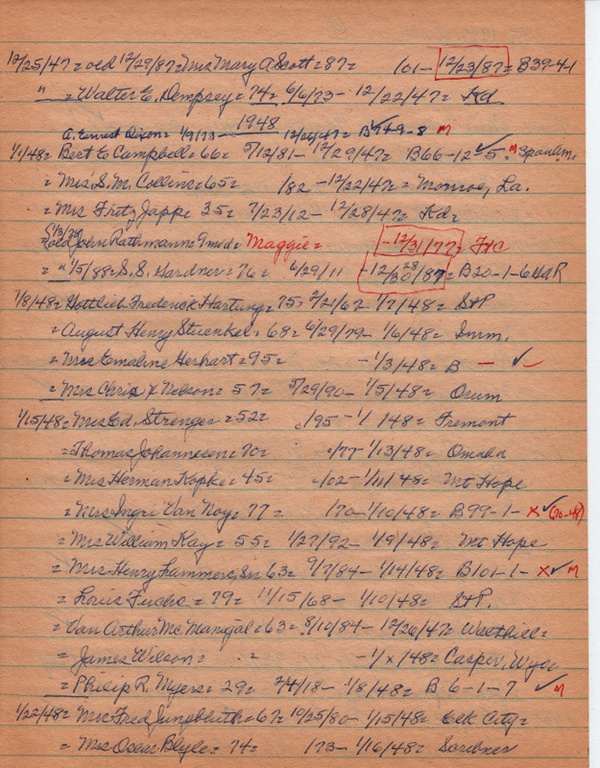 12/25/47 = old 12/29/87 = Mrs Mary A Scott = 87 = 101 - 12/23/87 = B39-41
" = Walter E. Dempsey = 74 = 6/6/73 - 12/22/47 = Kd
1948
A. Ernest Dixon = 1/9/73 - 12/26/47 = B 9-8 M
1/1/48 = Bert E Campbell = 66 = 5/12/81 - 12/29/47 = B66-12-5 ✓ M
= Mrs. S. M. Collins = 65 = /82 - 12/22/47 = Monroe, La.
= Mrs Fritz Japp = 35 = 7/23/12 - 12/28/47 = Kd =
old John Rathmann = 9 mo = Maggie = - 12/31/77 = FtC
= " 1/5/88 = S. S. Gardner = 76 = 6/29/11 - 12/30/87 28 = B20-1-6 HAR
1/8/48 = Gottlieb Frederick Hartung = 75 = 2/21/67 - 1/7/48 = StP
= August Henry Stuenkel = 68 = 6/29/79 - 1/6/48 = Imm.
= Mrs Emaline Gerhart = 95 = - 1/3/48 = B - ✓
= Mrs Chris X Nelson = 57 = 5/29/90 - 1/5/48 = Orum
1/15/48 = Mrs Ed. Strenger = 52 = /95 - 1/ /48 = Fremont
= Thomas Johannesen = 70 = /77 - 1/13/48 = Omaha
= Mrs Herman Kopke = 45 = /02 - 1/11/48 = Mt Hope
= Mrs Ingri Van Noy = 77 = /70 - 1/10/48 = B99-1- X ✓ (70-48)
= Mrs William Kay = 55 = 1/27/92 - 1/9/48 = Mt Hope
= Mrs Henry Lammers, Sr. 63 = 9/7/84 - 1/14/48 = B101-1- X ✓ M
= Louis Fuchs = 79 = 11/15/68 - 1/10/48 = StP.
= Van Arthur McManigal = 63 = 8/10/84 - 12/26/47 =
= James Wilson = - 1/x/48 = Casper, Wyo
= Philip R. Myers = 29 = 2/4/18 - 1/8/48 = B 6-1-7 ✓ M
1/22/48 = Mrs Fred Jungbluth = 67 = 10/25/80 - 1/15/48 = Elk City =
= Mrs Oscar Blyle = 74 = /73 - 1/16/48 = Scribner